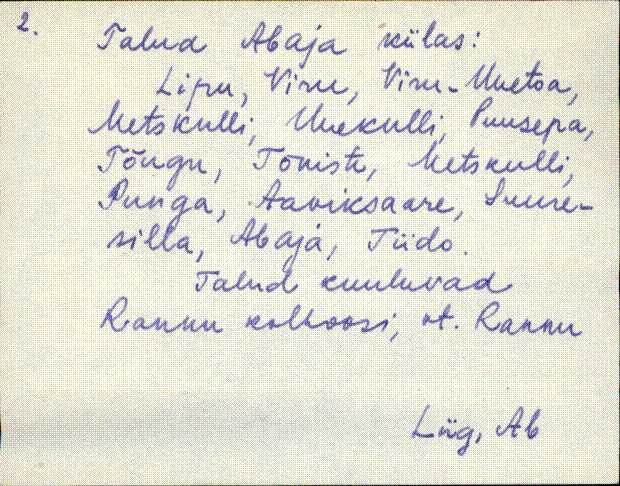 2.
Talud Abaja külas:
Lipu, Viru, Viru-Uuetoa,
Metskulli, Uuekulli, Puusepa,
Tõugu, Tõnist, Metskulli,
Punga, Aaviksaare, Suure-
silla, Abaja, Tiido.
Talud kuuluvad
Rannu kolhoosi, vt. Rannu
Liig, Ab